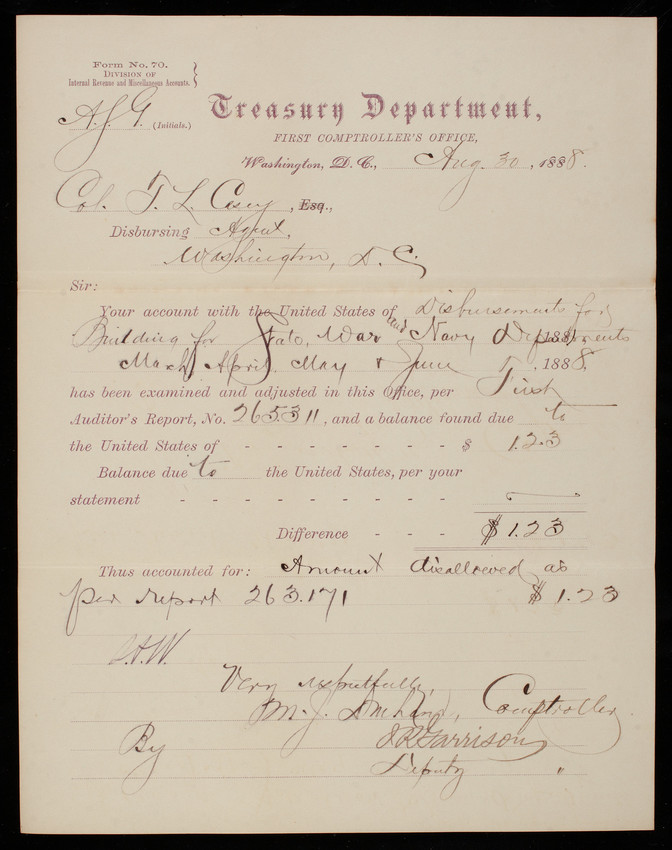 Form No. 70.
Division of
Internal Revenue and Miscellaneous Accounts.
A.J.G. (Initials.)
Treasury Department,
FIRST COMPTROLLER'S OFFICE,
Washington, D. C., Aug. 30, 1888.
Col. T. L. Casey, Esq.,
Disbursing Agent,
Washington, D. C.
Sir:
Your account with the United States of Disbursements for
Building for State, War and Navy Departments 188
March, April, May & June, 1888,
has been examined and adjusted in this Office, per First
Auditor's Report, No. 265311, and a balance found due to
the United States of - - - - - - - - - $ 1.23
Balance due to the United States, per your
statement - - - - - - - - - -
Difference - - - $1.23
Thus accounted for: Amount disallowed as
per report 263.171 $1.23
Very respectfully,
M. J. Durham, Comptroller
By J. R. Garrison
Deputy "